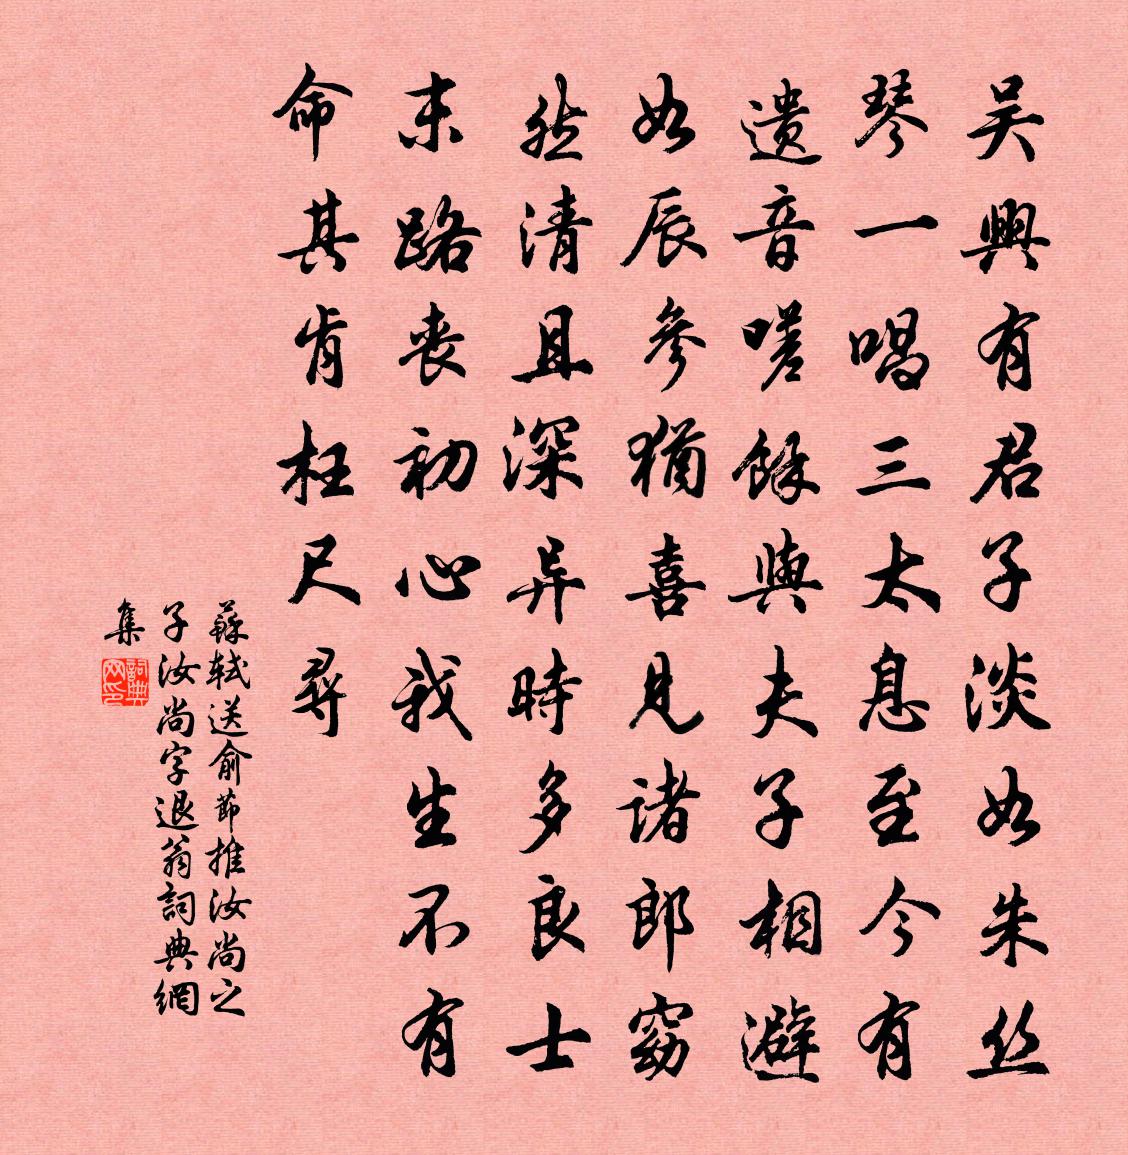 吴興有君子淡如朱丝
琴一唱三太息至今有
遗音嗟餘與夫子相避
如辰參猶喜見诸郎窈
然清且深异時多良士
末路丧初心我生不有
命其肯枉尺尋
蘇轼送俞節推汝尚之
子汝尚字退翁詞典網
集
詞典网印